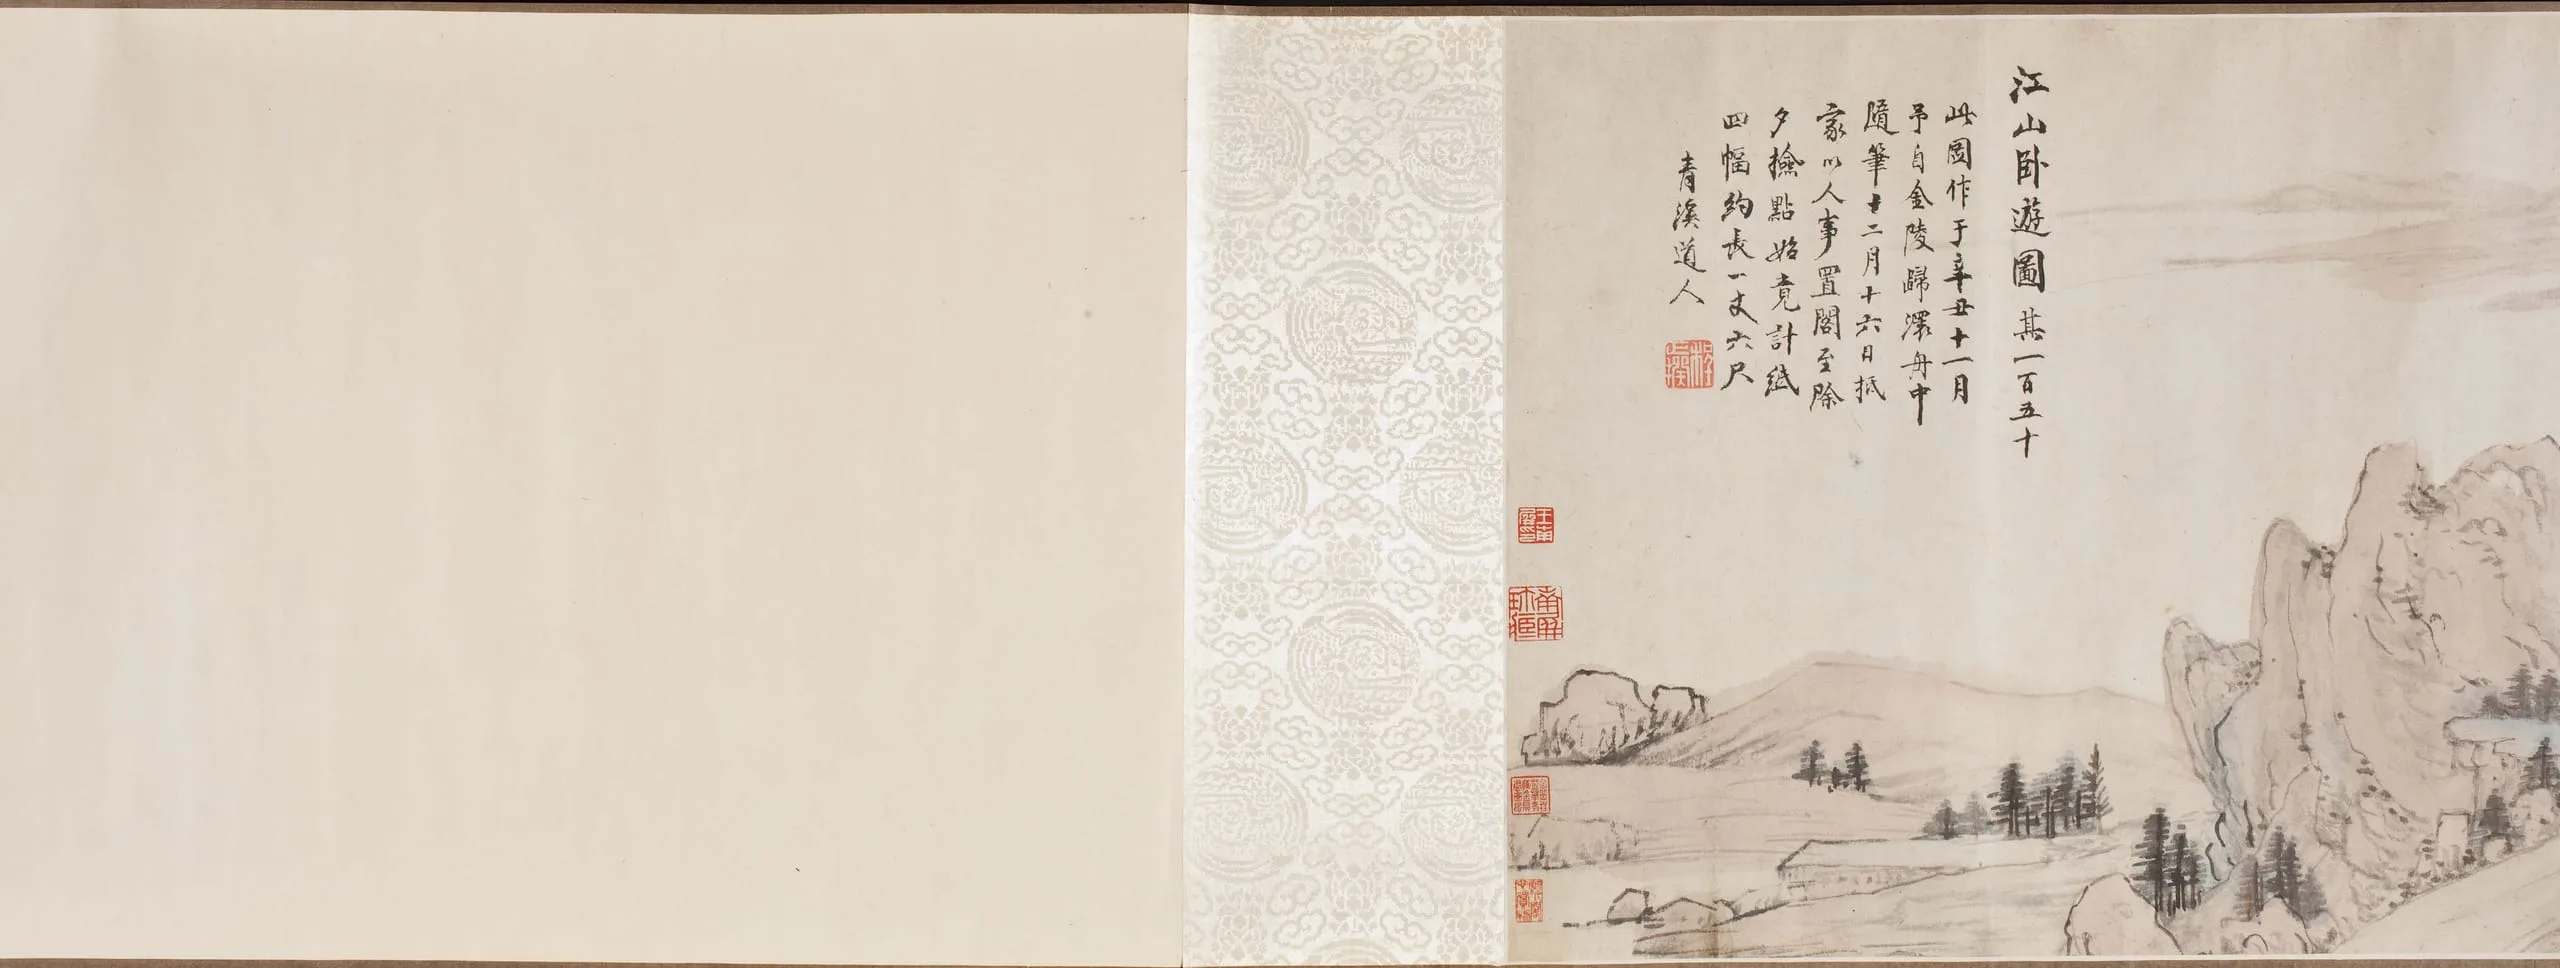 江山卧遊圖其一百五十
此圖作于辛丑十一月
予自金陵歸澤舟中
隨筆十二月十六日抵
家以人事置閣至除
夕撿點始竟計紙
四幅約長一丈六尺
青溪道人
程正揆
王南屏印
南屏珍藏